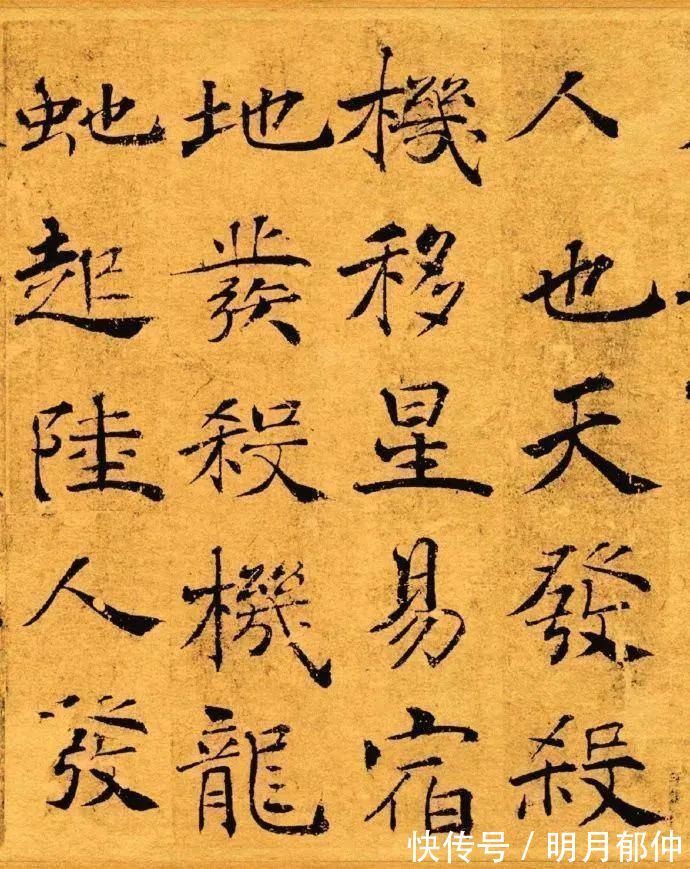 人也天發殺
機移星易宿
地發殺機龍
虵起陸人發
快传号/明月郁仲